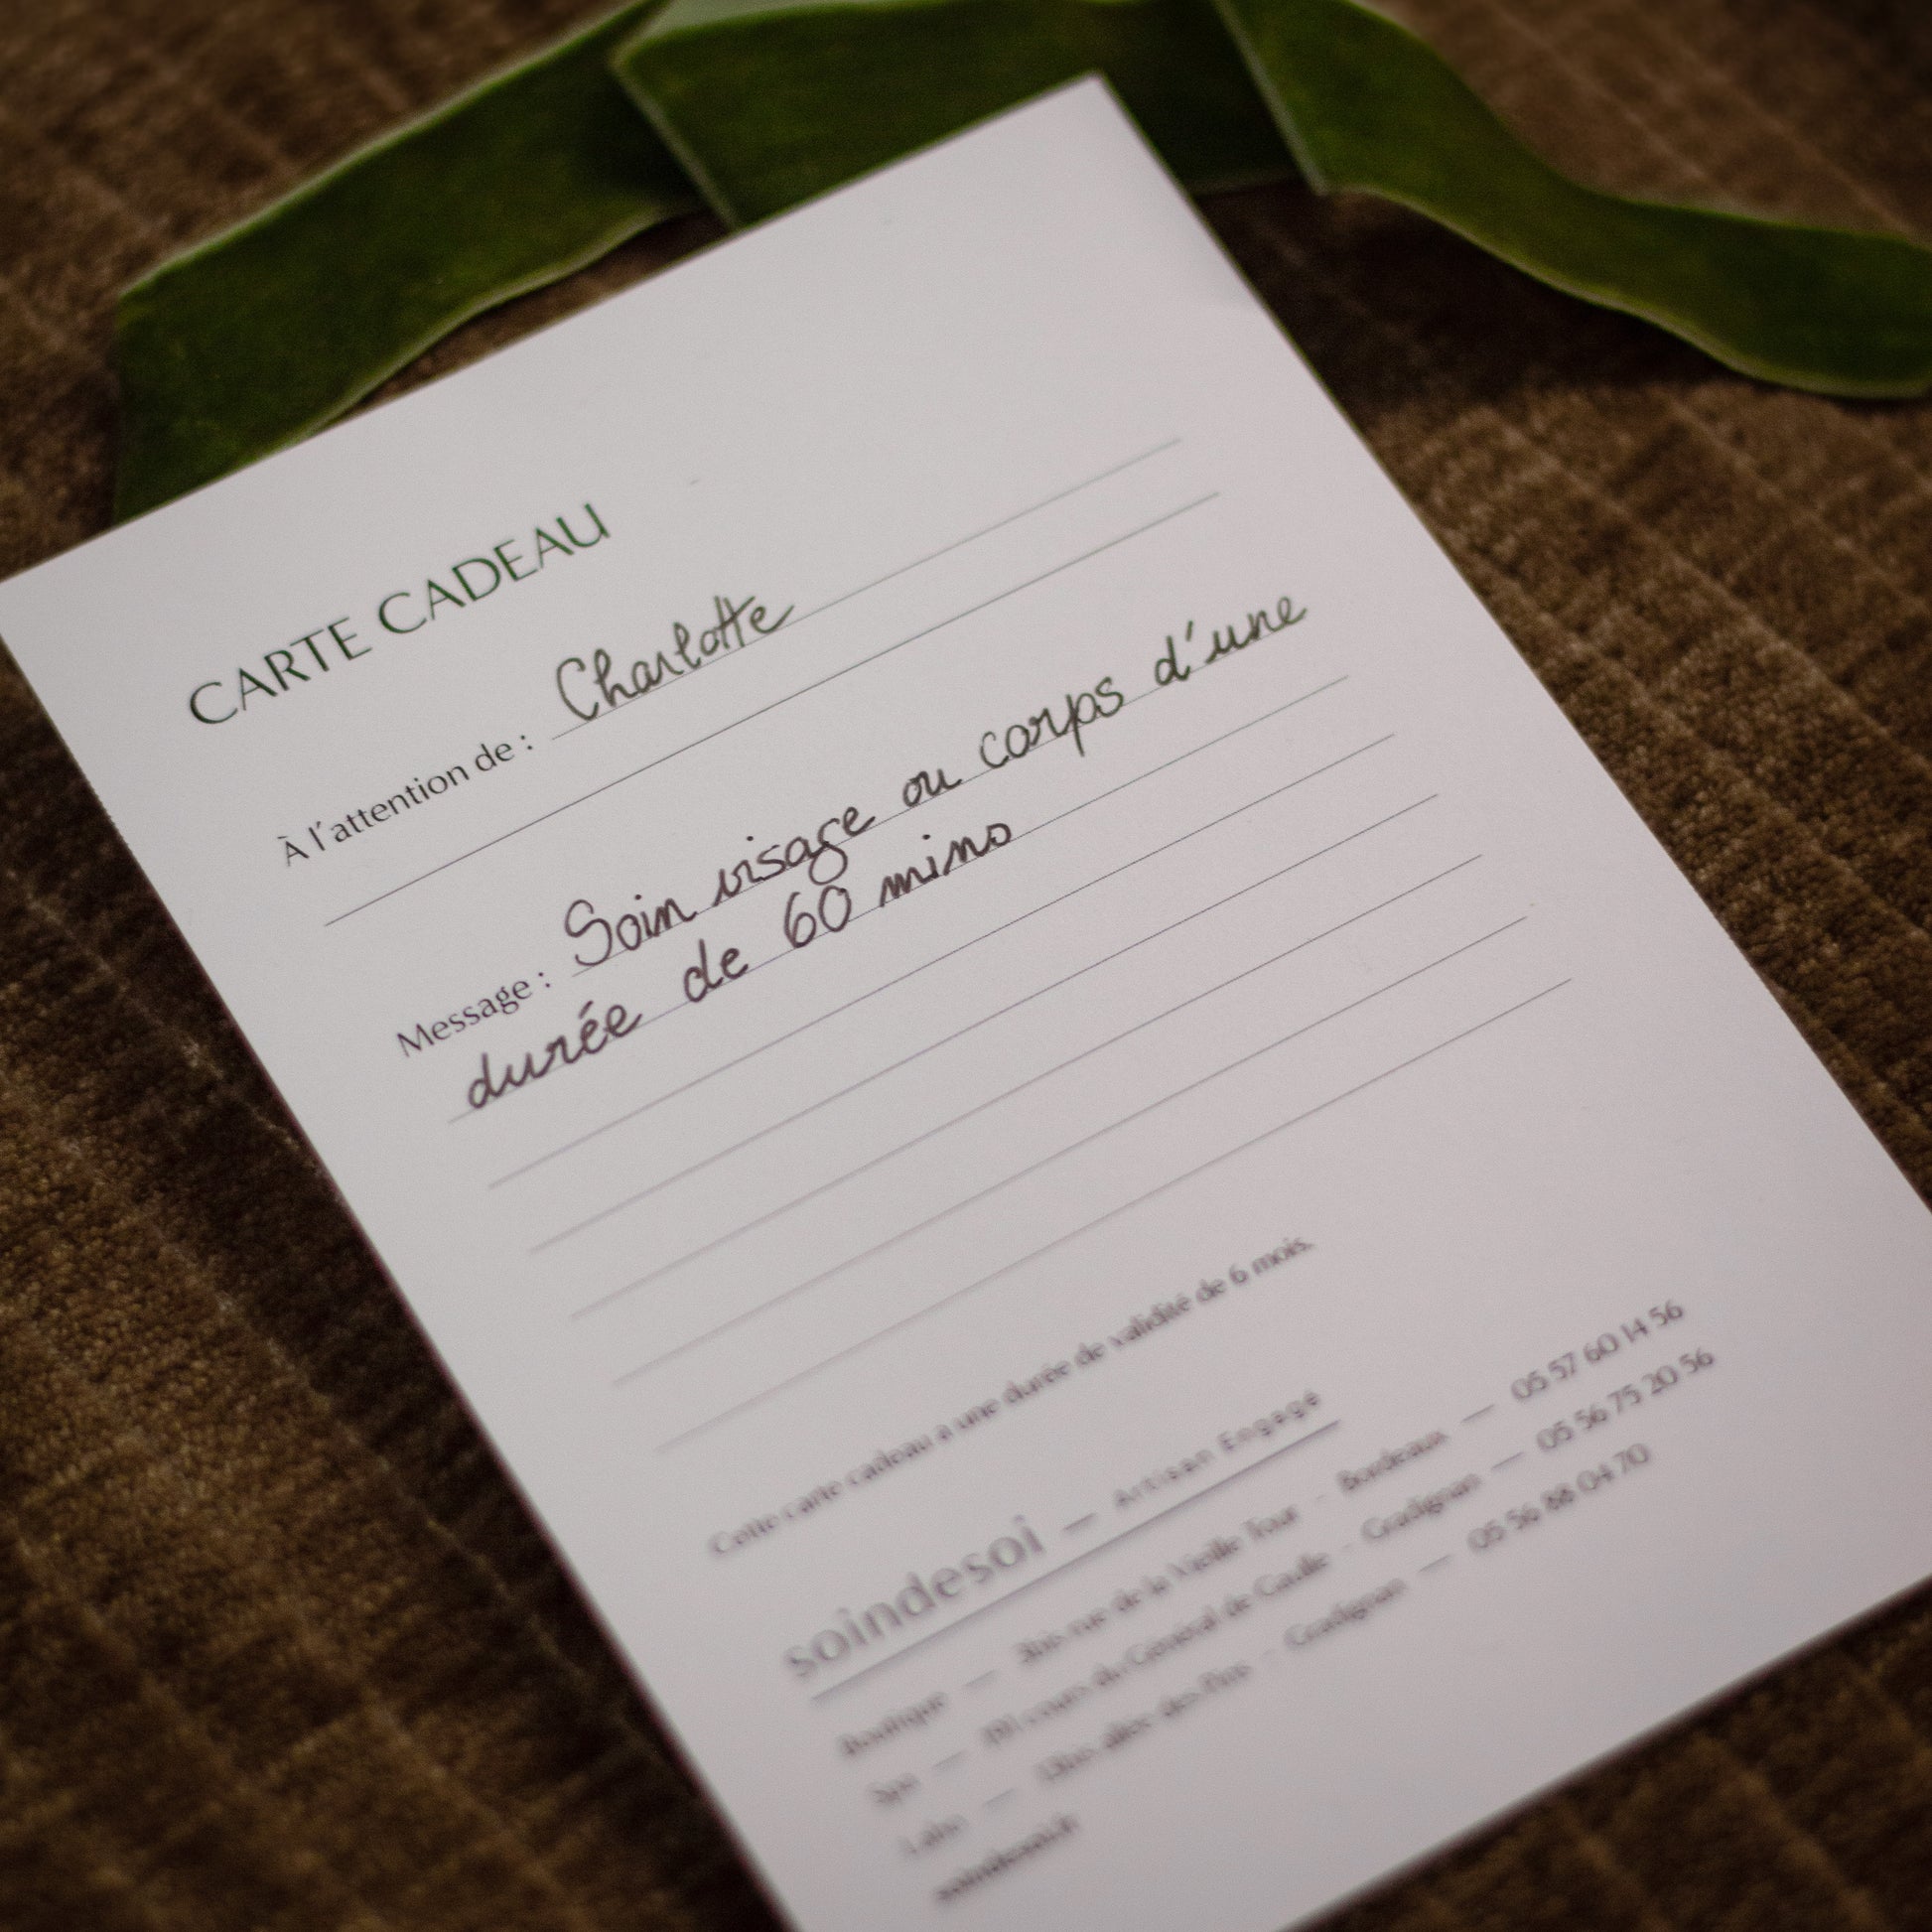 CARTE CADEAU
À l'attention de : Charlotte
Message : Soin visage ou corps d'une
durée de 60 mins
Cette carte cadeau a une durée de validité de 6 mois.
soindesoi — Artisan Engagé
Boutique — 3bis rue de la Vieille Tour - Bordeaux — 05 57 60 14 56
Spa — cours du Général de Gaulle - Gradignan — 05 56 75 20 56
Labo — allée des Pins - Gradignan — 05 56 88 04 70
soindesoi.fr